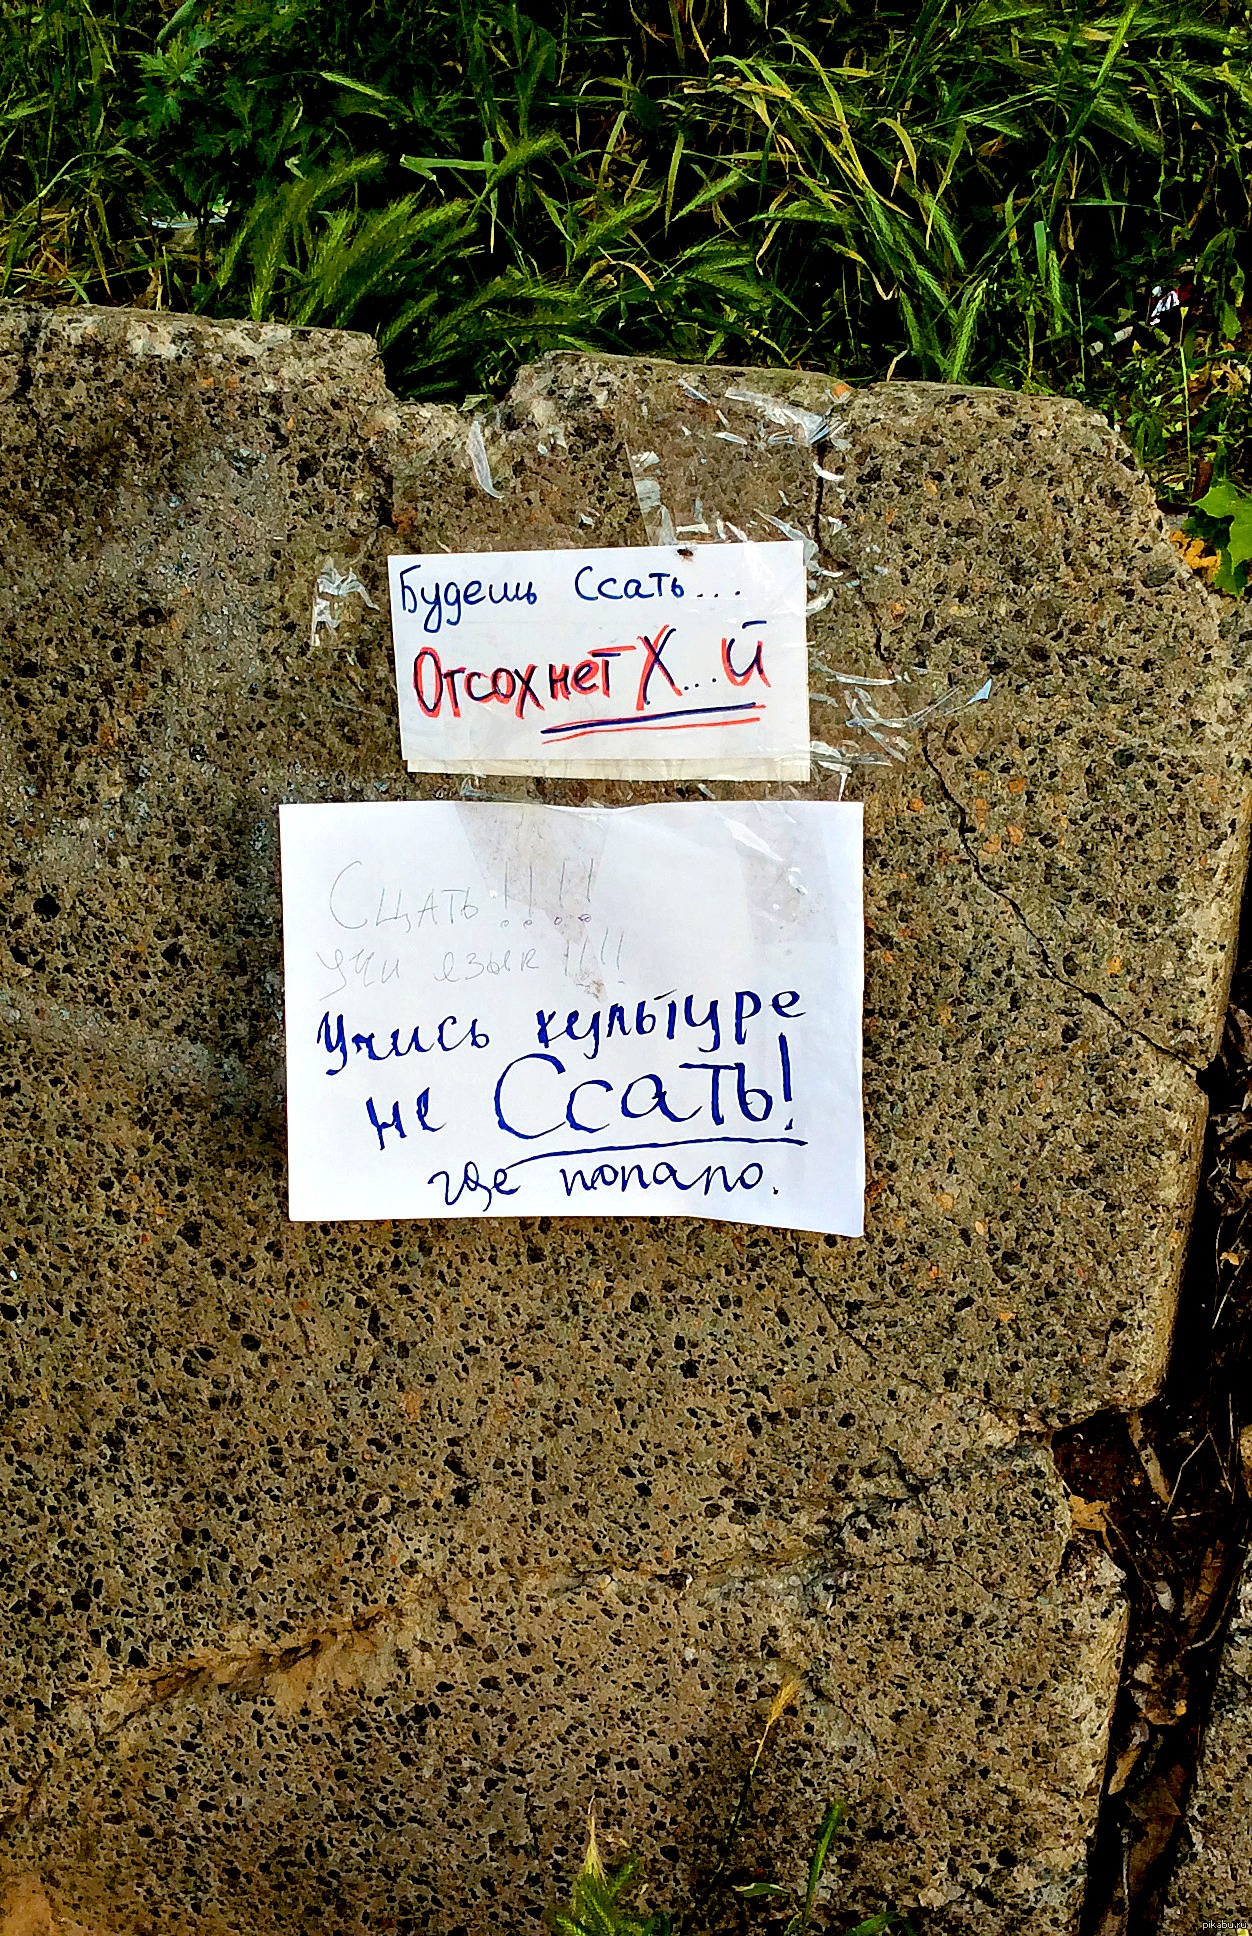 Будешь Ссать...
Отсохнет Х...й
Сцать!!!!
учи язык!!!!
Учись культуре
не Ссать!
где попало.
pikabu.ru